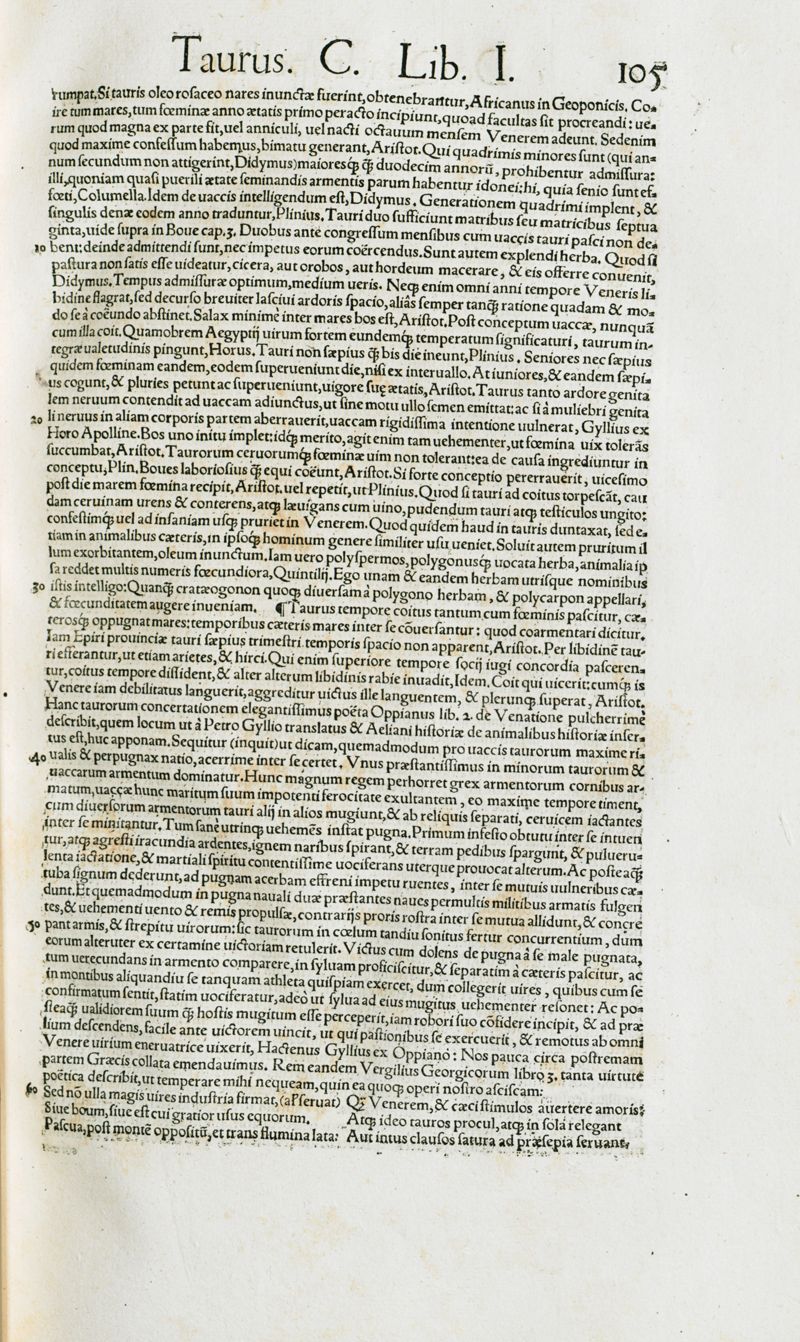 Taurus. C. Lib. I. 105
rumpat. Si tauris oleo rosaceo nares inunctæ fuerint, obtenebrantur, Africanus in Geoponicis. Co-
ire tum mares, tum fœminæ anno ætatis primo peracto incipiunt, quoad facultas sit procreandi: ue-
rum quod magna ex parte fit, uel anniculi, uel nacti octauum mensem Venerem adeunt. Sedenim
quod maxime confessum habemus, bimatu generant, Aristot. Qui quadrimis minores sunt (qui an-
num secundum non attigerint, Didymus) maioresq́; q̃ duodecim annorũ, prohibentur admissura:
illi, quoniam quasi puerili ætate seminandis armentis parum habentur idonei: hi, quia senio sunt ef-
fœti, Columella. Idem de uaccis intelligendum est, Didymus. Generationem quadrimi implent, &
singulis denæ eodem anno traduntur, Plinius. Tauri duo sufficiunt matribus seu matricibus septua
ginta, uide supra in Boue cap. 3. Duobus ante congressum mensibus cum uaccis tauri pasci non de-
10 bent: deinde admittendi sunt, nec impetus eorum coërcendus. Sunt autem explendi herba. Quod si
pastura non satis esse uideatur, cicera, aut orobos, aut hordeum macerare, & eis offerre conuenit,
Didymus. Tempus admissuræ optimum, medium ueris. Neq; enim omni anni tempore Veneris li-
bidine flagrat, sed decurso breuiter lasciui ardoris spacio, aliâs semper tanq̃ ratione quadam & mo-
do se à coëundo abstinet. Salax minimè inter mares bos est, Aristot. Post conceptum uaccæ, nunquã
cum illa coit. Quamobrem Aegyptij uirum fortem eundemq́; temperatum significaturi, taurum in-
tegræ ualetudinis pingunt, Horus. Tauri non sæpius q̃ bis die ineunt, Plinius. Seniores nec sæpius
quidem fœminam eandem, eodem superueniunt die, nisi ex interuallo. At iuniores, & eandem sæpi-
us cogunt, & pluries petunt ac superueniunt, uigore suæ ætatis, Aristot. Taurus tanto ardore genita
lem neruum contendit ad uaccam adiunctus, ut sine motu ullo semen emittat: ac si à muliebri genita
20 li neruus in aliam corporis partem aberrauerit, uaccam rigidissima intentione uulnerat, Gyllius ex
Horo Apolline. Bos uno initu implet: idq́; merito, agit enim tam uehementer, ut fœmina uix tolerãs
succumbat, Aristot. Taurorum ceruorumq́; fœminæ uim non tolerant: ea de causa ingrediuntur in
conceptu, Plin. Boues laboriosius q̃ equi coëunt, Aristot. Si forte conceptio pererrauerit, uicesimo
post die marem fœmina recipit, Aristot. uel repetit, ut Plinius. Quod si tauri ad coitus torpescãt, cau
dam ceruinam urens & conterens, atq; læuigans cum uino, pudendum tauri atq; testiculos ungito:
confestimq́; uel ad insaniam usq; pruriet in Venerem. Quod quidem haud in tauris duntaxat, sed e-
tiam in animalibus cæteris, in ipsoq́; hominum genere similiter usu ueniet. Soluit autem pruritum il
lum exorbitantem, oleum inunctum. Iam uero polyspermos, polygonusq́; uocata herba, animalia ip
sa reddet multis numeris fœcundiora, Quintilij. Ego unam & eandem herbam utrisque nominibus
30 istis intelligo: Quanq̃ cratæogonon quoq; diuersam à polygono herbam, & polycarpon appellari,
& fœcunditatem augere inueniam. ¶ Taurus tempore coitus tantum cum fœminis pascitur, cæ-
terosq́; oppugnat mares: temporibus cæteris mares inter se cõuersantur: quod coarmentari dicitur.
Iam Epiri prouinciæ tauri sæpius trimestri temporis spacio non apparent, Aristot. Per libidinẽ tau-
ri efferantur, ut etiam arietes, & hirci. Qui enim superiore tempore socij iugi concordia pasceren-
tur, coitus tempore dissident, & alter alterum libidinis rabie inuadit, Idem. Coit qui uicerit: cumq́; is
Venere iam debilitatus languerit, aggreditur uictus ille languentem, & plerunq; superat, Aristot.
Hanc taurorum concertationem elegantissimus poëta Oppianus lib. 2. de Venatione pulcherrimè
describit, quem locum ut à Petro Gyllio translatus & Aeliani historiæ de animalibus historiæ inser-
tus est, huc apponam. Sequitur (inquit) ut dicam, quemadmodum pro uaccis taurorum maxime ri-
40 ualis & perpugnax natio, acerrime inter se certet. Vnus præstantissimus in minorum taurorum &
uaccarum armentum dominatur. Hunc magnum regem perhorret grex armentorum cornibus ar-
matum, uaccæ hunc maritum suum impotenti ferocitate exultantem, eo maxime tempore timent,
cum diuersorum armentorum tauri alij in alios mugiunt, & ab reliquis separati, ceruicem iactantes
inter se minitantur. Tum sanè utrinq; uehemẽs instat pugna. Primum infesto obtutu inter se intuen
tur, atq; agresti iracundia ardentes, ignem naribus spirant, & terram pedibus spargunt, & pulueru-
lenta iactatione, & martiali spiritu contentissime uociferans uterque prouocat alterum. Ac posteaq̃
tuba signum dederunt, ad pugnam acerbam effreni impetu ruentes, inter se mutuis uulneribus cæ-
dunt. Et quemadmodum in pugna nauali duæ præstantes naues permultis militibus armatis fulgen
tes, & uehementi uento & remis propulsæ, contrarijs proris rostra inter se mutua allidunt, & concre
50 pant armis, & strepitu uirorum: sic taurorum in cœlum tandiu sonitus fertur concurrentium, dum
eorum alteruter ex certamine uictoriam retulerit. Victus cum dolens de pugna à se male pugnata,
tum uerecundans in armento comparere, in syluam proficiscitur, & separatim à cæteris pascitur, ac
in montibus aliquandiu se tanquam athleta quispiam exercet, dum collegerit uires, quibus cum se
confirmatum sentit, statim uociferatur, adeò ut sylua ad eius mugitus uehementer resonet: Ac po-
steaq̃ ualidiorem suum q̃ hostis mugitum esse perceperit, iam robori suo cõfidere incipit, & ad præ
lium descendens, facile ante uictorem uincit, ut qui pastionibus se exercuerit, & remotus ab omni
Venere uirium eneruatrice uixerit, Hactenus Gyllius ex Oppiano: Nos pauca circa postremam
partem Græcis collata emendauimus. Rem eandem Vergilius Georgicorum libro 3. tanta uirtute
poëtica describit, ut temperare mihi nequeam, quin ea quoq; operi nostro asciscam:
60 Sed nõ ulla magis uires industria firmat, (asseruat) Q̃ Venerem, & cæci stimulos auertere amoris:
Siue boum, siue est cui gratior usus equorum. Atq; ideo tauros procul, atq; in sola relegant
Pascua, post montẽ oppositũ, et trans flumina lata: Aut intus clausos satura ad præsepia seruant,